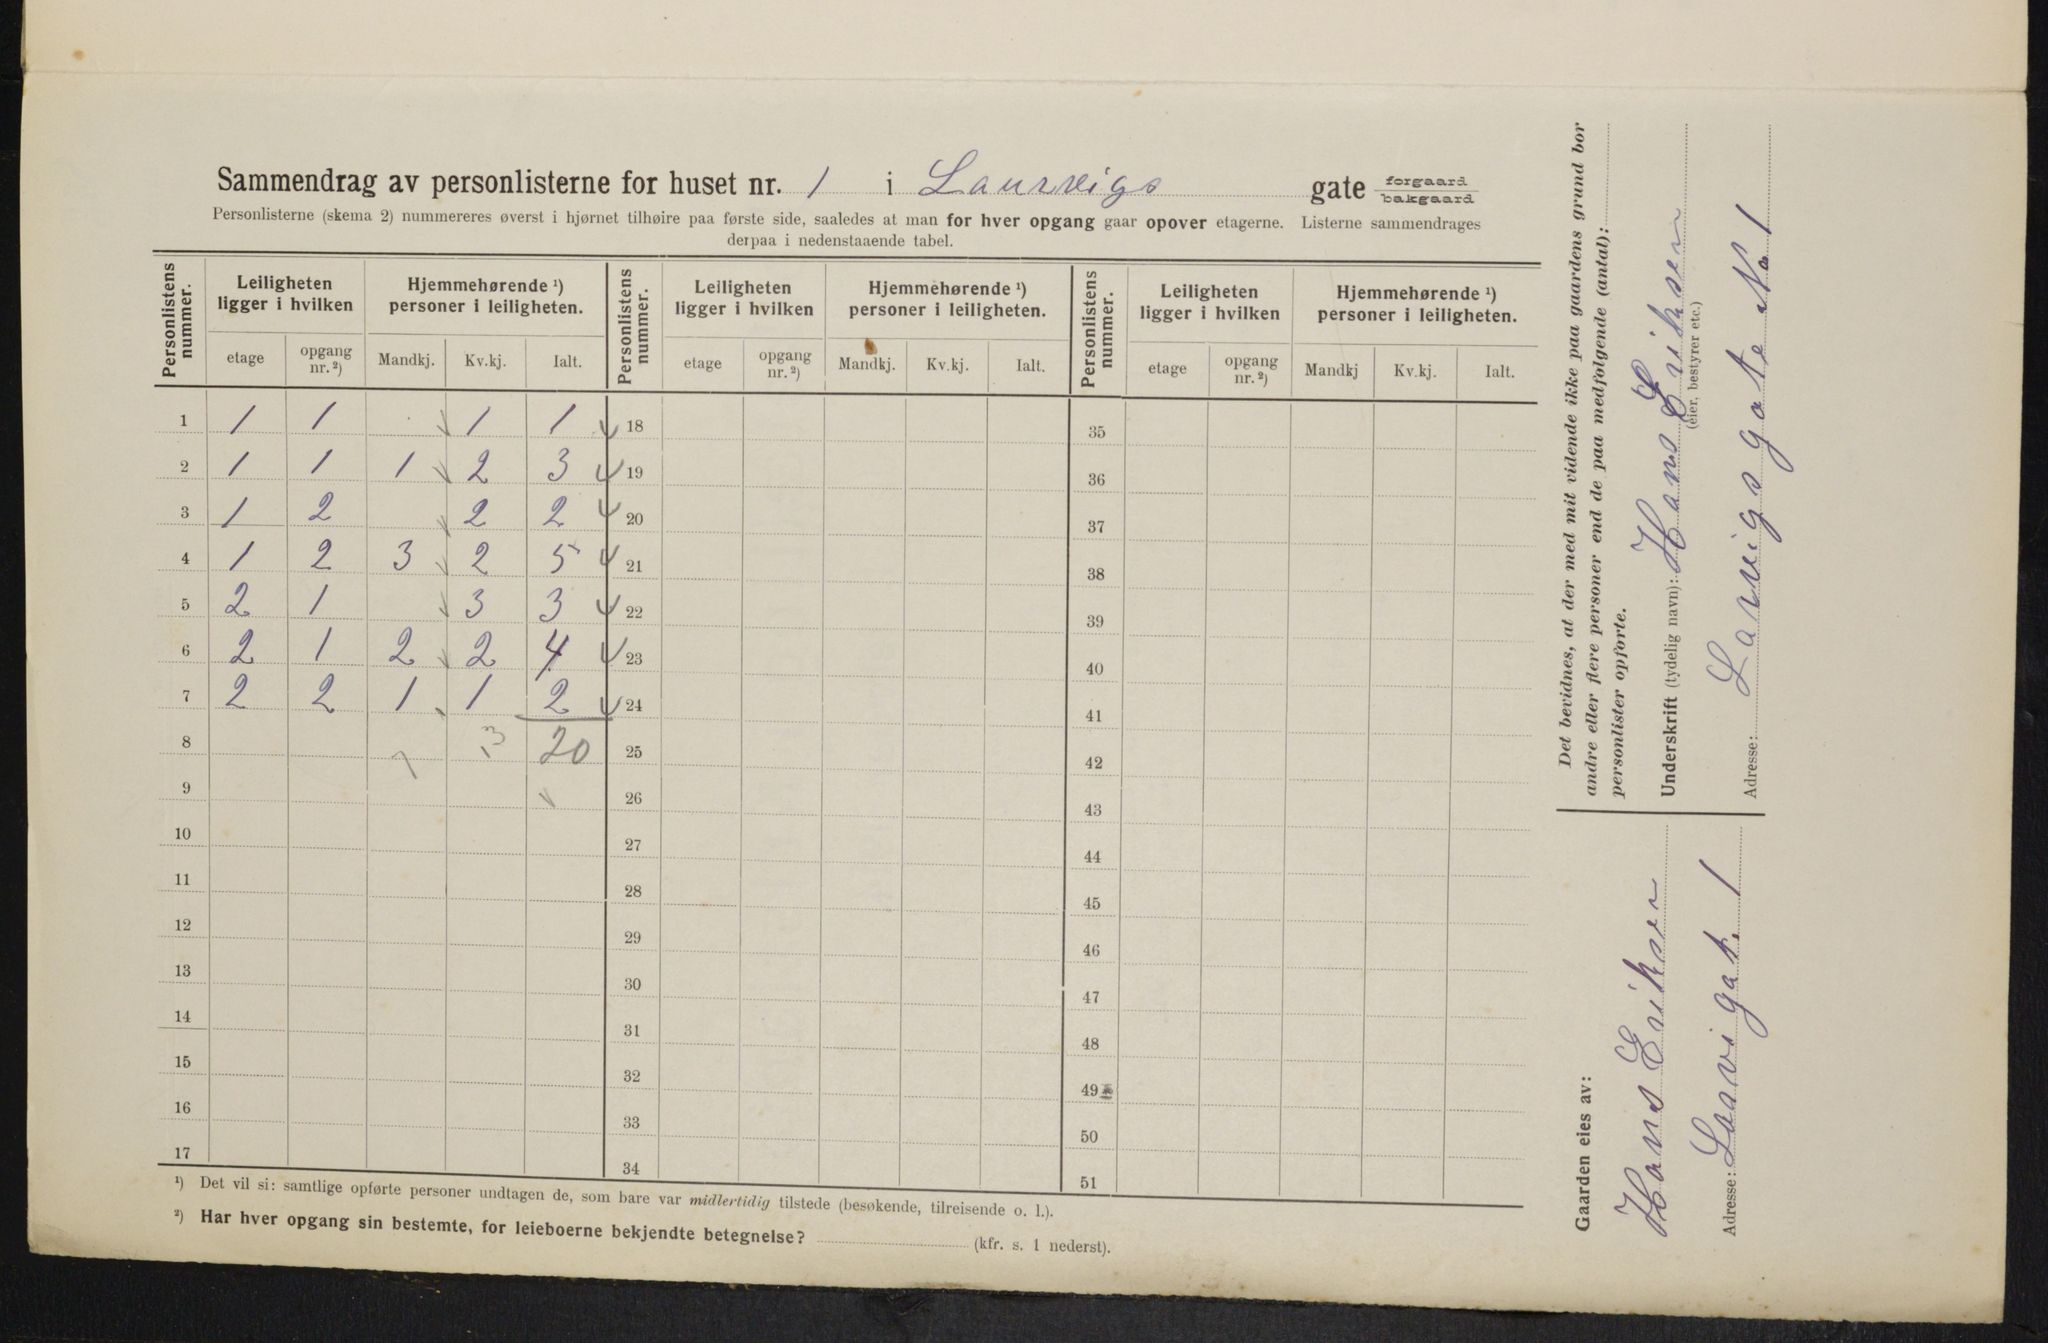 Sammendrag av personlisterne for huset nr. 1 i Laurvigs gate forgaard
bakgaard
Personlisterne (skema 2) nummereres øverst i hjørnet tilhøire paa første side, saaledes at man for hver opgang gaar opover etagerne. Listerne sammendrages
derpaa i nedenstaaende tabel.
Personlistens nummer. Leiligheten ligger i hvilken Hjemmehørende ¹) personer i leiligheten. Personlistens nummer. Leiligheten ligger i hvilken Hjemmehørende ¹) personer i leiligheten. Personlistens nummer. Leiligheten ligger i hvilken Hjemmehørende ¹) personer i leiligheten.
etage opgang nr. ²) Mandkj. Kv.kj. Ialt. etage opgang nr. ²) Mandkj. Kv.kj. Ialt. etage opgang nr. ²) Mandkj Kv.kj. Ialt.
1 1 1 1 1 18 35
2 1 1 1 2 3 19 36
3 1 2 2 2 20 37
4 1 2 3 2 5 21 38
5 2 1 3 3 22 39
6 2 1 2 2 4 23 40
7 2 2 1 1 2 24 41
8 7 13 20 25 42
9 26 43
10 27 44
11 28 45
12 29 46
13 30 47
14 31 48
15 32 49
16 33 50
17 34 51
¹) Det vil si: samtlige opførte personer undtagen de, som bare var midlertidig tilstede (besøkende, tilreisende o. l.).
²) Har hver opgang sin bestemte, for leieboerne bekjendte betegnelse? (kfr. s. 1 nederst).
Det bevidnes, at der med mit vidende ikke paa gaardens grund bor
andre eller flere personer end de paa medfølgende (antal):
personlister opførte.
Underskrift (tydelig navn): Hans Eriksen
(eier, bestyrer etc.)
Adresse: Larvigsgate No 1
Gaarden eies av:
Hans Eriksen
Adresse: Larvigat. 1